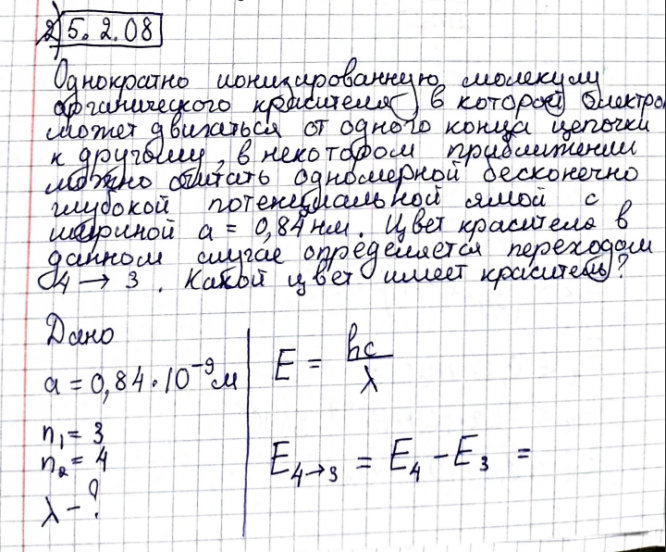 2) 5.2.08
Однократно ионизированную молекулу
органического красителя, в которой электрон
может двигаться от одного конца цепочки
к другому, в некотором приближении
можно считать одномерной бесконечно
глубокой потенциальной ямой с
шириной a = 0,84 нм. Цвет красителя в
данном случае определяется переходом
4 → 3. Какой цвет имеет краситель?
Дано
a = 0,84·10⁻⁹ м
n₁ = 3
n₂ = 4
λ - ?
E = hc/λ
E₄→₃ = E₄ - E₃ =